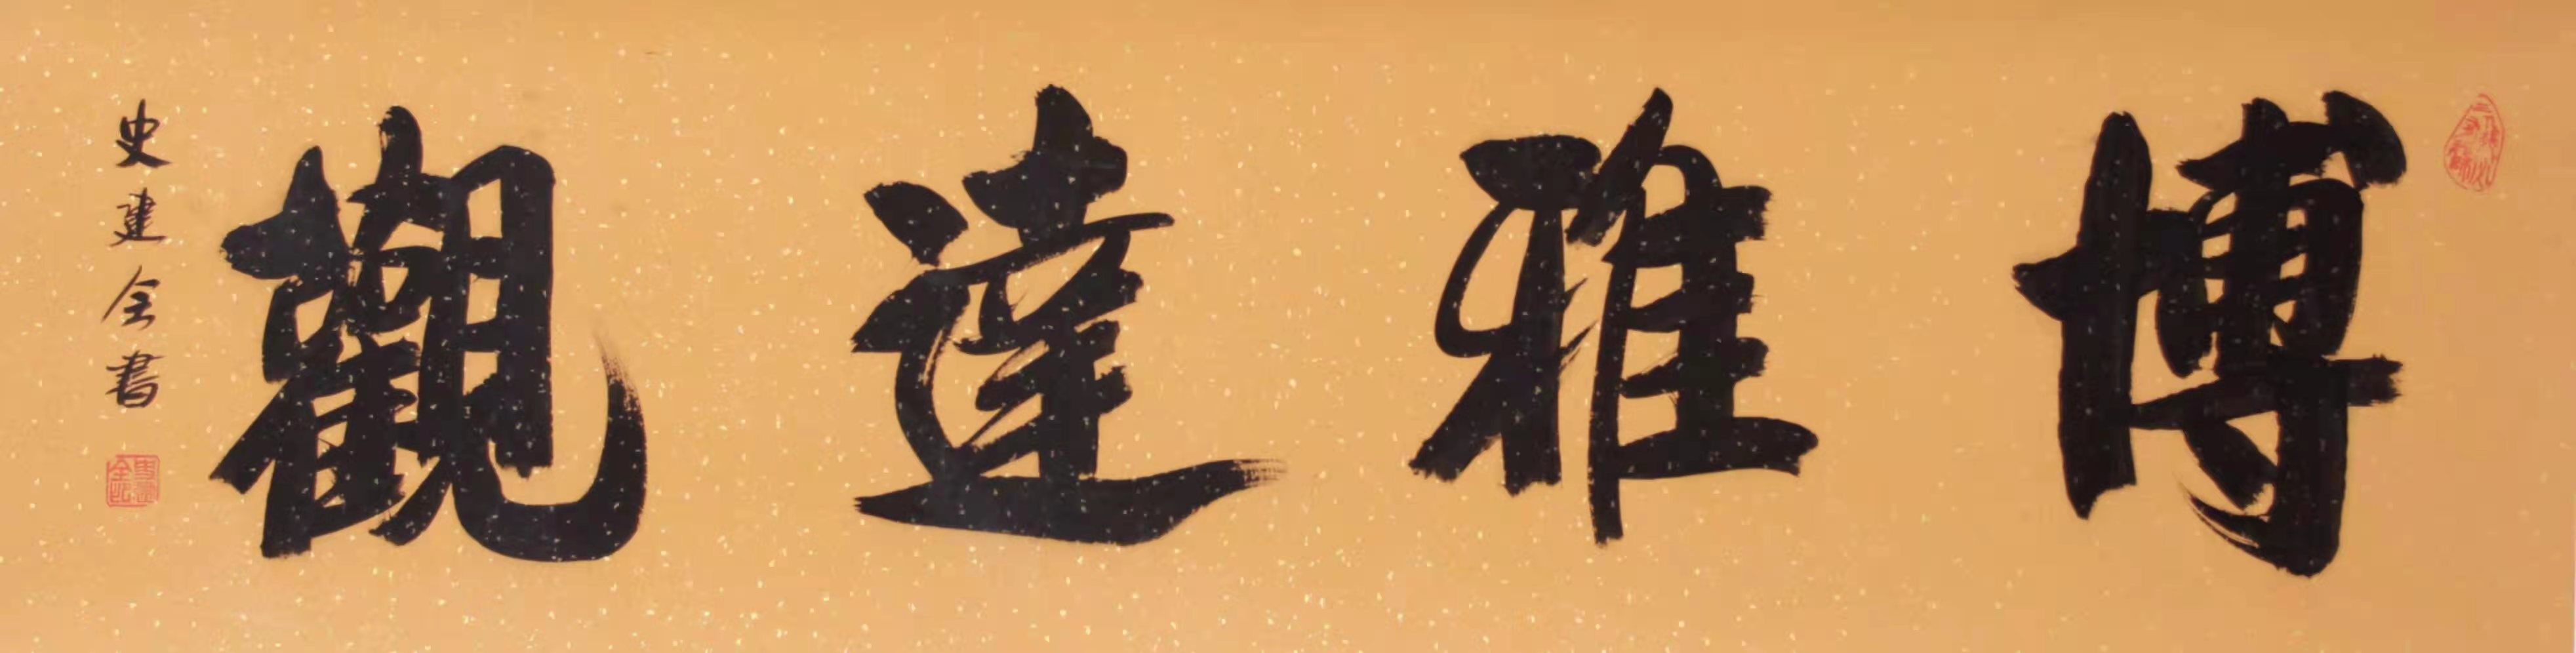 博雅達觀
史建全書